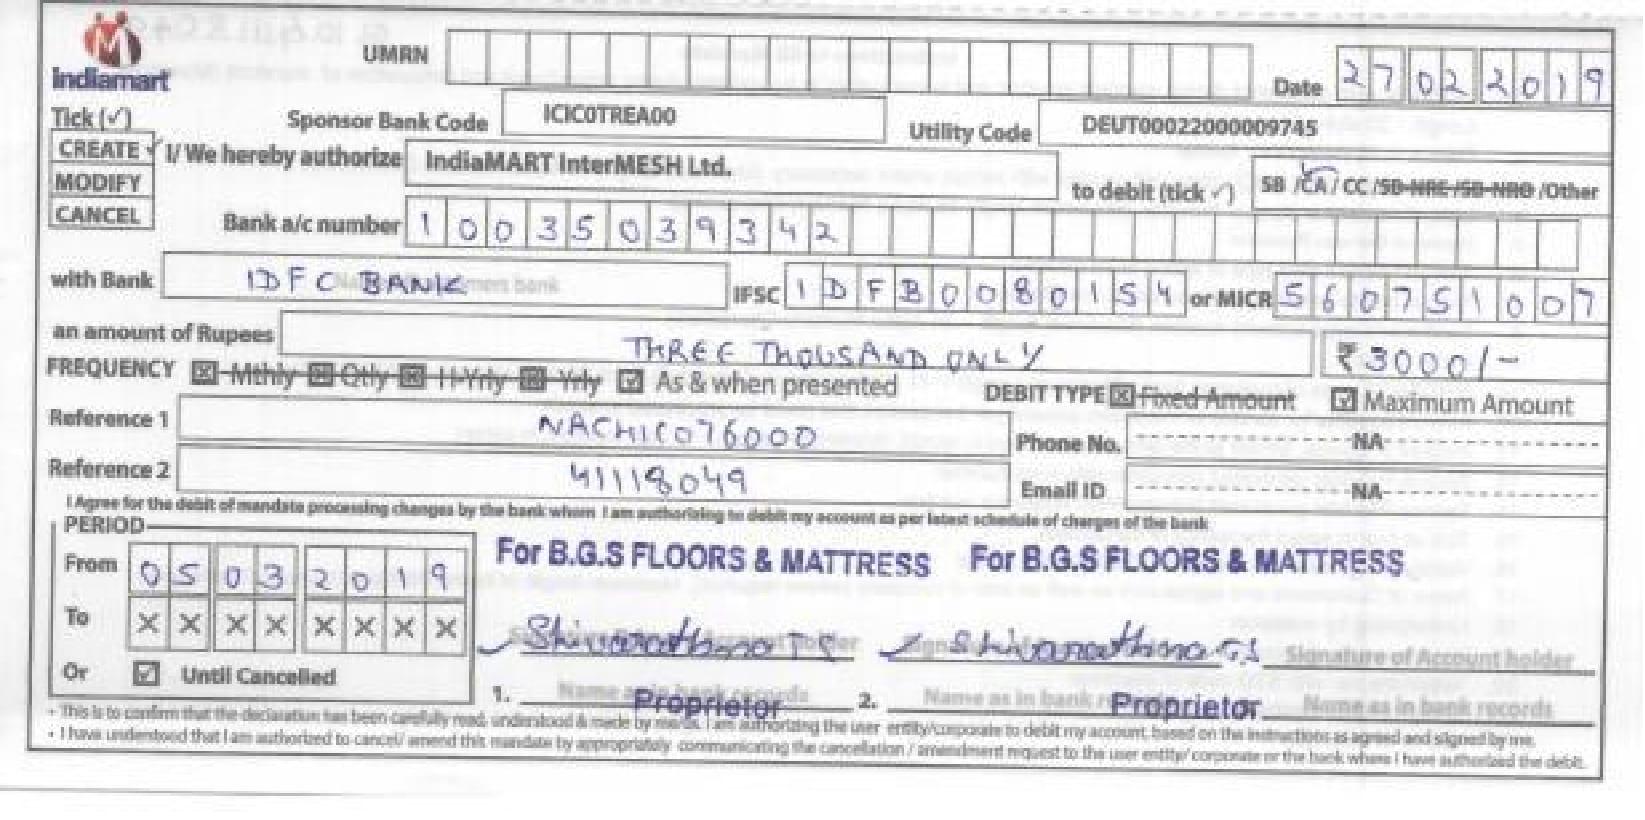 indiamart
UMRN
Date 27022019
Tick (✓)
Sponsor Bank Code ICIC0TREA00 Utility Code DEUT00022000009745
CREATE ✓ I/ We hereby authorize IndiaMART InterMESH Ltd. to debit (tick ✓) SB /CA / CC /SB-NRE/SB-NRO /Other
MODIFY
CANCEL
Bank a/c number 10035039342
with Bank IDFC BANK IFSC IDFB0080154 or MICR 560751007
an amount of Rupees THREE THOUSAND ONLY ₹3000/-
FREQUENCY ☒ Mthly ☒ Qtly ☒ H-Yrly ☒ Yrly ☑ As & when presented DEBIT TYPE ☒ Fixed Amount ☑ Maximum Amount
Reference 1 NACH1C076000 Phone No. NA
Reference 2 41118049 Email ID NA
I Agree for the debit of mandate processing changes by the bank whom I am authorizing to debit my account as per latest schedule of charges of the bank
PERIOD
From 05032019
To XXXXXXXX
Or ☑ Until Cancelled
For B.G.S FLOORS & MATTRESS For B.G.S FLOORS & MATTRESS
Signature of Account holder
1. Name as in bank records 2. Name as in bank records Name as in bank records
Proprietor Proprietor
• This is to confirm that the declaration has been carefully read, understood & made by me/us. I am authorizing the user entity/corporate to debit my account, based on the instructions as agreed and signed by me.
• I have understood that I am authorized to cancel/ amend this mandate by appropriately communicating the cancellation / amendment request to the user entity/ corporate or the bank where I have authorized the debit.